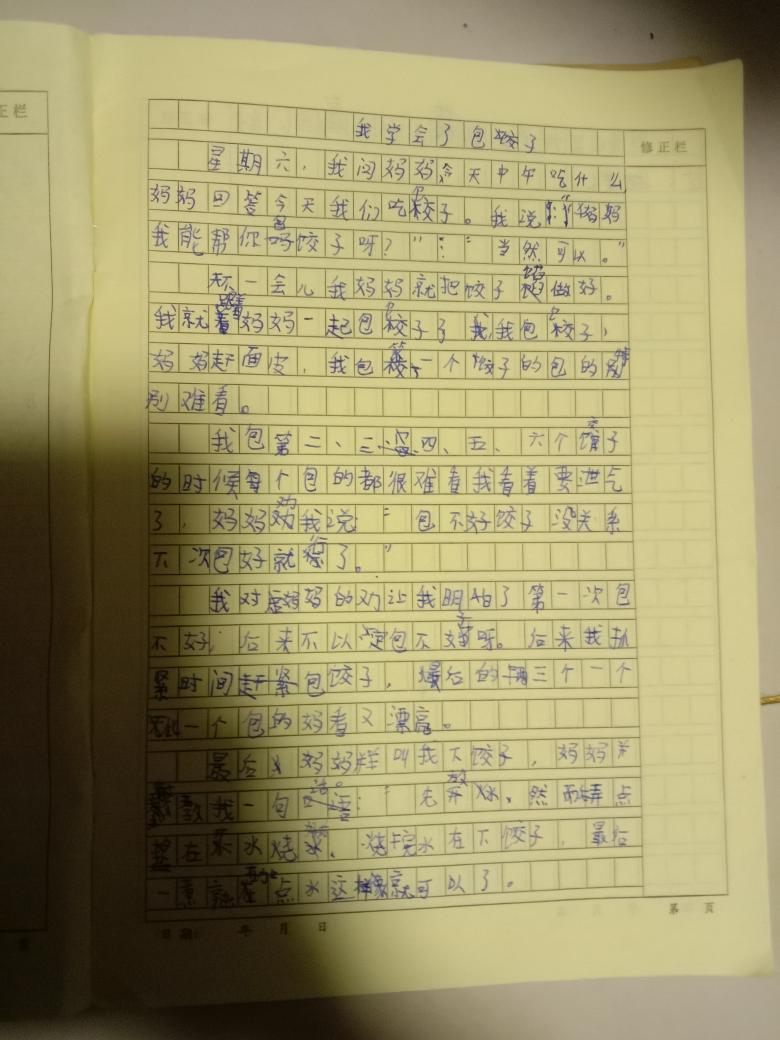 正栏
修正栏
我学会了包饺子
星期六，我问妈妈今天中午吃什么
妈妈回答今天我们吃饺子。我说：“妈妈
我能帮你包饺子呀？”：“当然可以。”
不一会儿我妈妈就把饺子馅做好。
我就跟着妈妈一起包饺子了我包饺子，
妈妈赶面皮，我包第一个饺子的包的特
别难看。
我包第二、三、四、五、六个饺子
的时候每个包的都很难看我看着要泄气
了，妈妈劝我说：“包不好饺子没关系
下次包好就行了。”
我对妈妈的劝让我明白了第一次包
不好后来不以定包不好呀。后来我抓
紧时间包饺子，最后的三个一个
一个包的好看又漂亮。
最后妈妈叫我下饺子，妈妈
教我一句话：“先放水，然而
在水烧，烧完水在下饺子，最后
一煮熟点水这样就可以了。
日期：　年　月　日
第　页